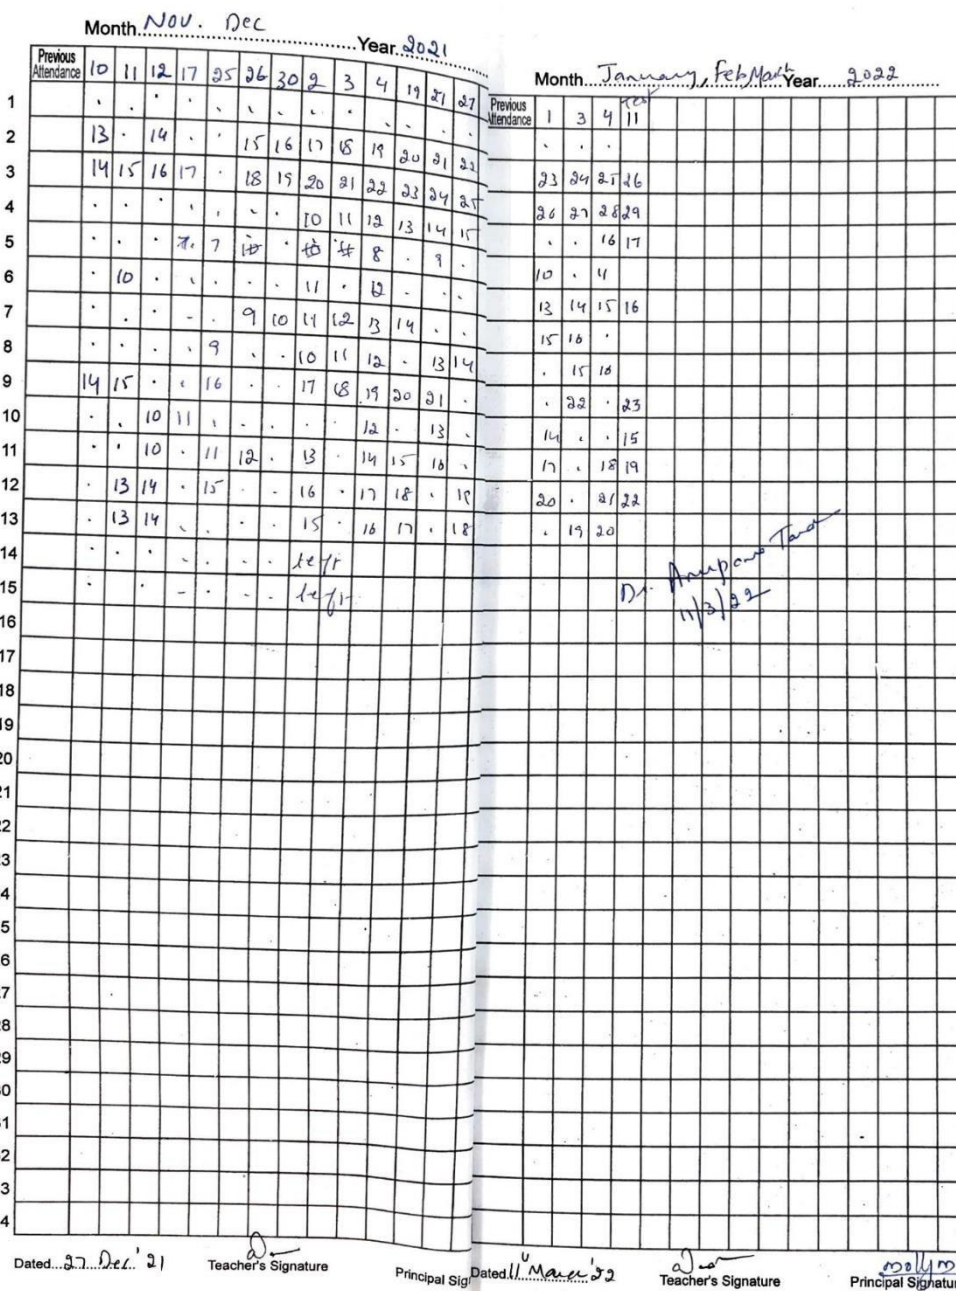 Month Nov. Dec Year 2021
Previous Attendance 10 11 12 17 25 26 30 2 3 4 19 21 27
1 . . . . . . . . . . . . .
2 13 . 14 . . 15 16 17 18 19 20 21 22
3 14 15 16 17 . 18 19 20 21 22 23 24 25
4 . . . . . . . 10 11 12 13 14 15
5 . . . 7 8 . 9 .
6 . 10 . . . . . 11 . 12 . . .
7 . . . . . 9 10 11 12 13 14 . .
8 . . . . 9 . . 10 11 12 . 13 14
9 14 15 . . 16 . . 17 18 19 20 21 .
10 . . 10 11 . . . . . 12 . 13 .
11 . . 10 . 11 12 . 13 . 14 15 16 .
12 . 13 14 . 15 . . 16 . 17 18 . 19
13 . 13 14 . . . . 15 . 16 17 . 18
14 . . . . . . . left
15 . . . . . . . left
16
17
18
19
20
21
22
23
24
25
26
27
28
29
30
31
32
33
34
Dated 27 Dec '21 Teacher's Signature Principal Sig
Month January, Feb March Year 2022
Test
Previous Attendance 1 3 4 11
. . .
23 24 25 26
26 27 28 29
. . 16 17
10 .
13 14 15 16
15 16 .
. 15 16
. 22 . 23
14 . . 15
17 . 18 19
20 . 21 22
. 19 20
Dr. Anupama
11/3/22
Dated 11 March '22 Teacher's Signature Principal Signatur